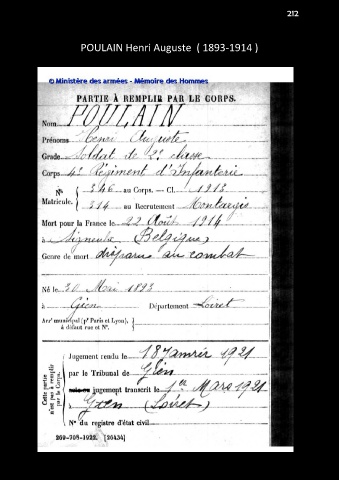 212
POULAIN Henri Auguste ( 1893-1914 )
© Ministère des armées - Mémoire des Hommes
PARTIE À REMPLIR PAR LE CORPS.
Nom POULAIN
Prénoms Henri Auguste
Grade Soldat de 2e classe
Corps 4e Régiment d'Infanterie
N° 346 au Corps. — Cl. 1913
Matricule. 314 au Recrutement Montargis
Mort pour la France le 22 Août 1914
à Signeulx (Belgique)
Genre de mort disparu au combat
Né le 30 Mai 1893
à Gien Département Loiret
Arr^t municipal (p^r Paris et Lyon),
à défaut rue et N°.
Cette partie n'est pas à remplir par le Corps.
Jugement rendu le 18 Janvier 1921
par le Tribunal de Gien
jugement transcrit le 1er Mars 1921
à Gien (Loiret)
N° du registre d'état civil
269-708-1922. [26434]